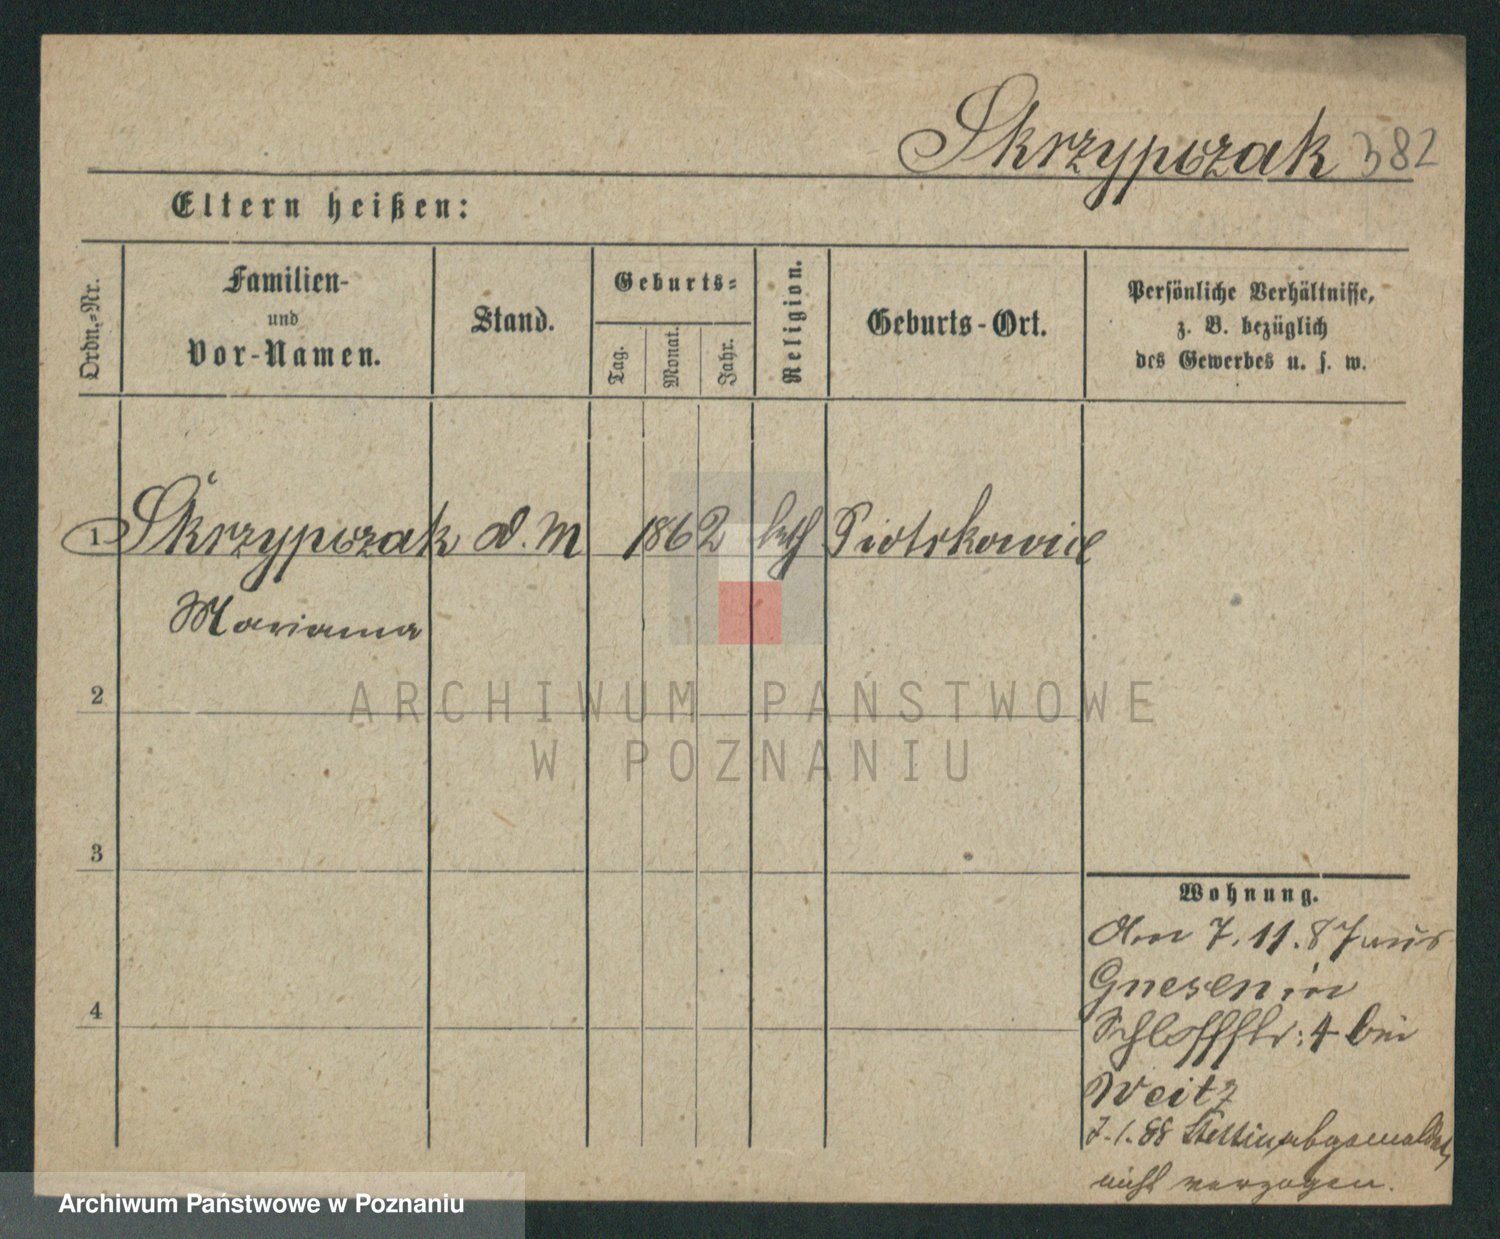 Skrzypczak 382
Eltern heißen:
Ordn.-Nr.
Familien-
und
Vor-Namen.
Stand.
Geburts-
Tag.
Monat.
Jahr.
Religion.
Geburts-Ort.
Persönliche Verhältnisse,
z. B. bezüglich
des Gewerbes u. s. w.
1 Skrzypczak d. M 1862 kath Piotrkowice
Marianna
2
3
4
Wohnung.
Am 7.11.87 aus
Gnesen in
Schloßstr: 4 bei
Weitz
7.1.88 Stettin abgemeldet,
nicht verzogen.
ARCHIWUM PAŃSTWOWE
W POZNANIU
Archiwum Państwowe w Poznaniu